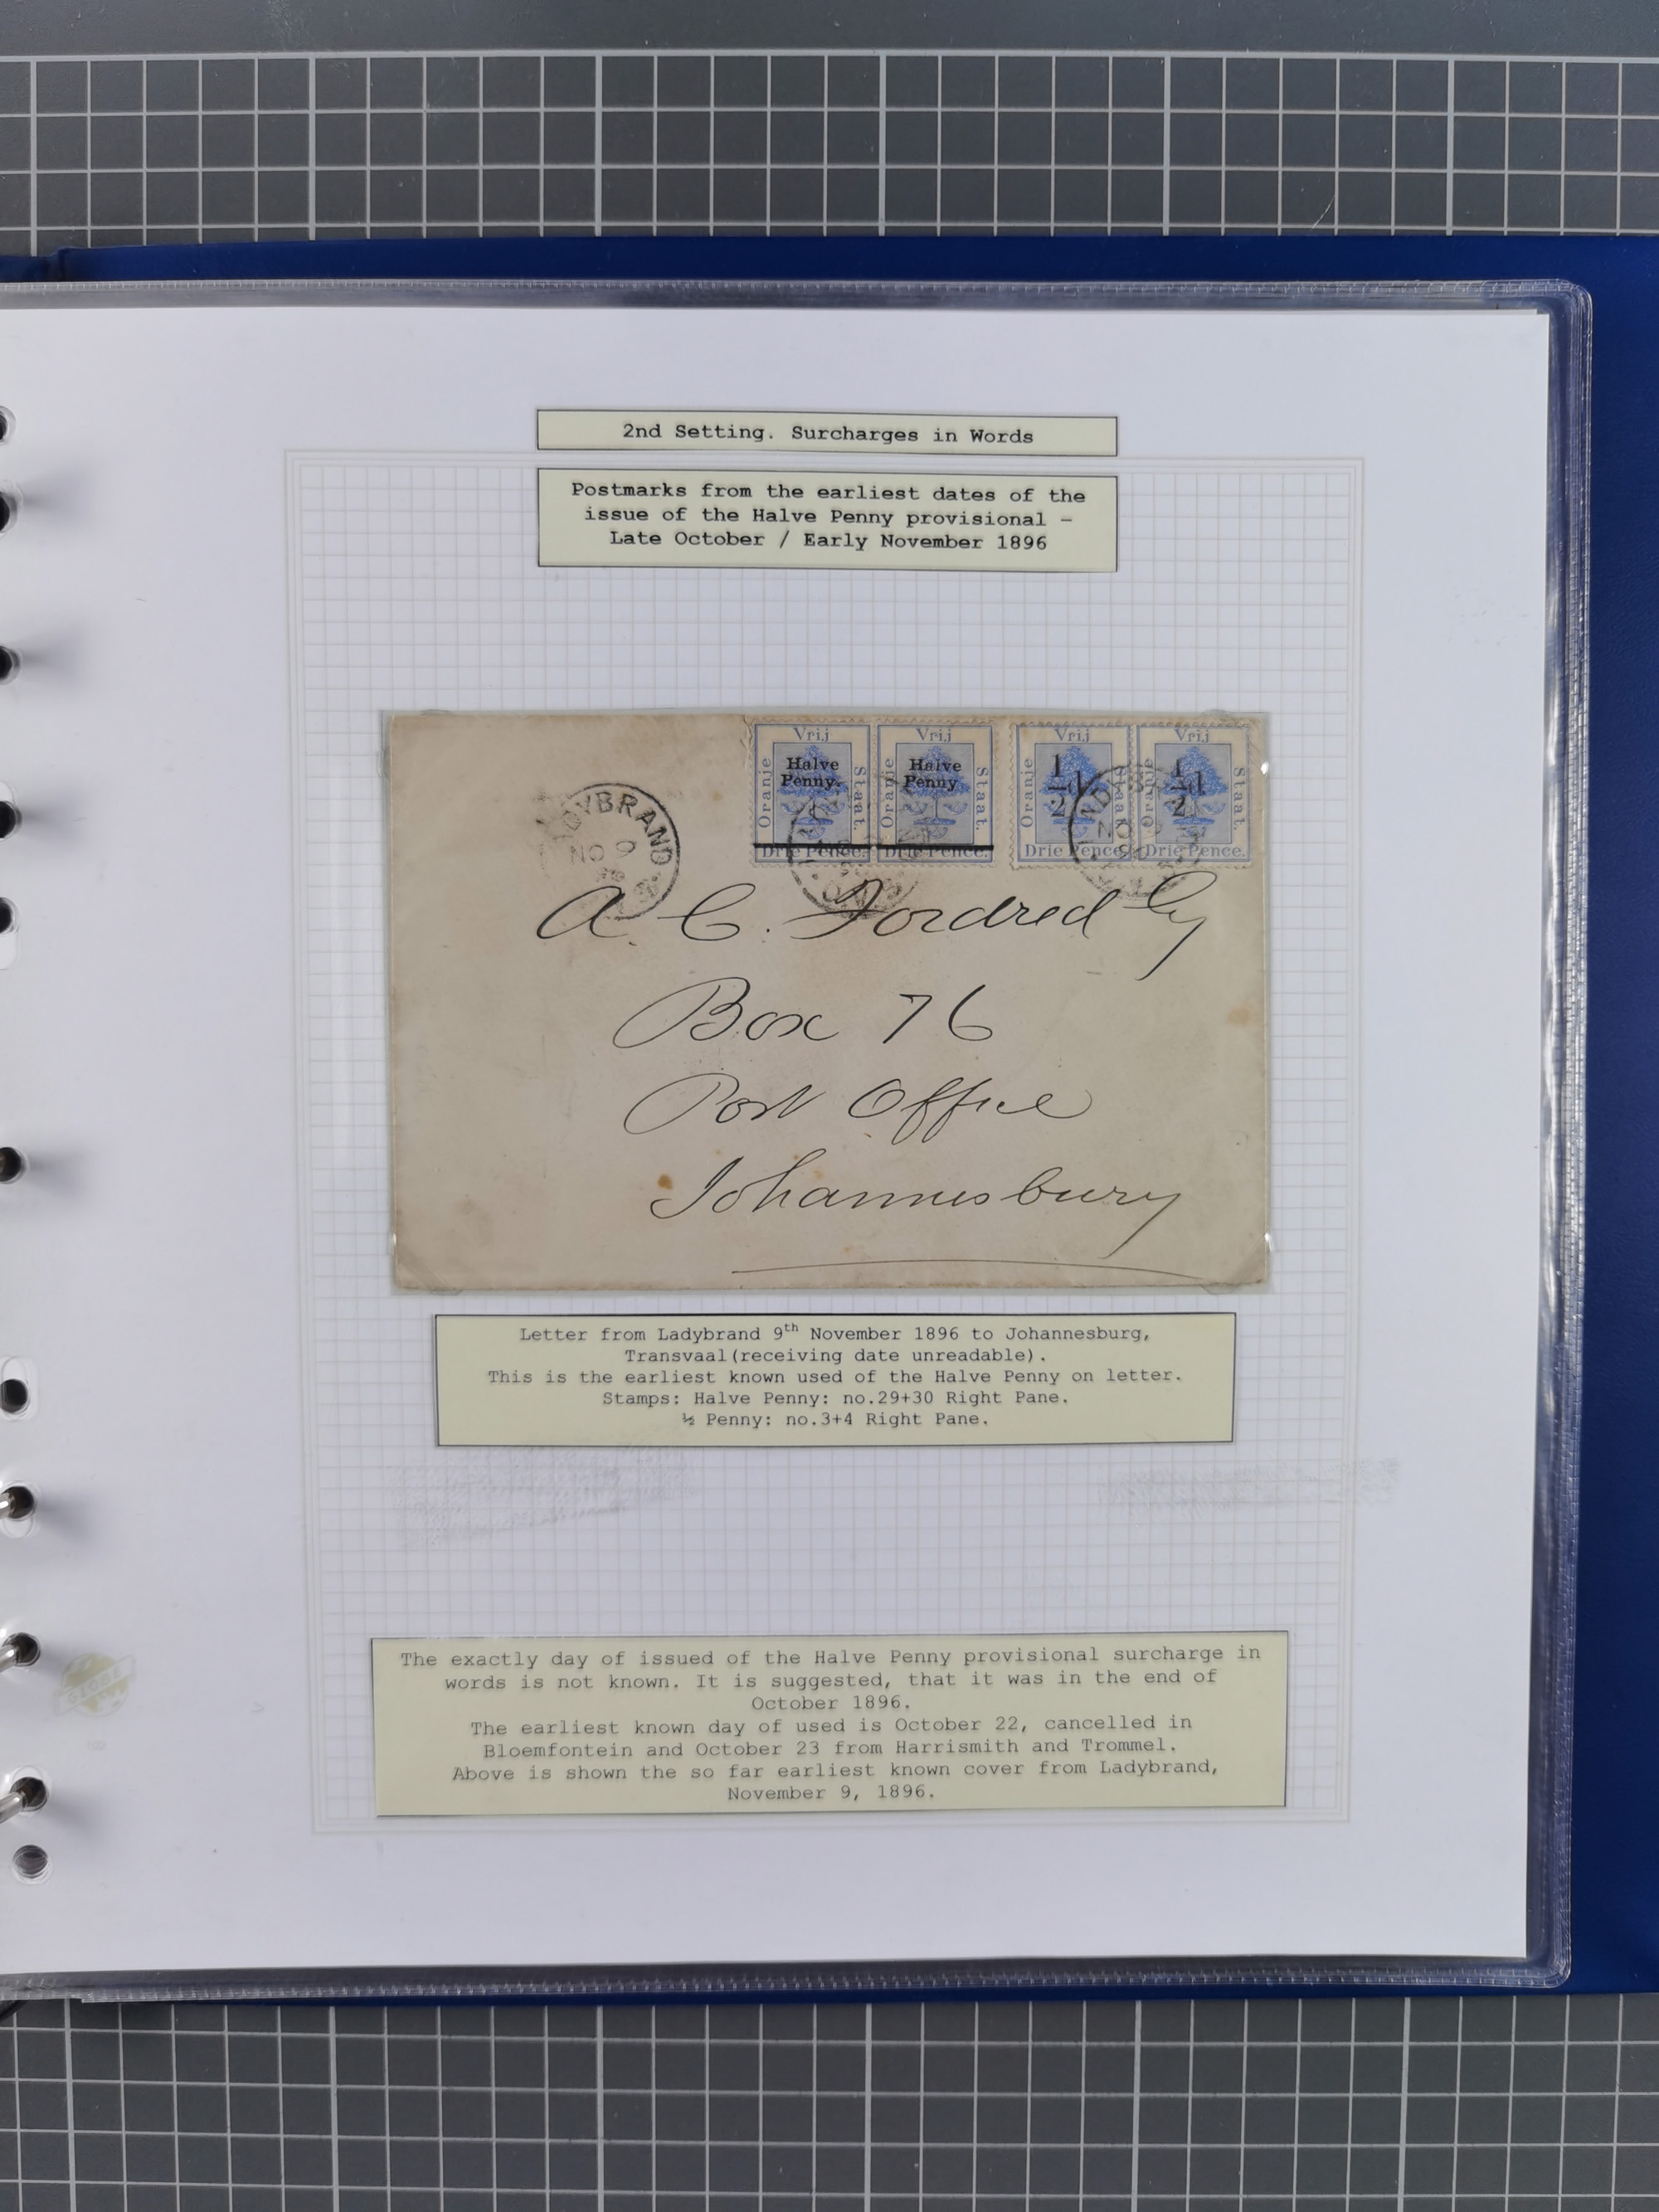 2nd Setting. Surcharges in Words
Postmarks from the earliest dates of the
issue of the Halve Penny provisional –
Late October / Early November 1896
Vrij
Oranje
Staat.
Halve
Penny.
Drie Pence.
Vrij
Oranje
Staat.
Halve
Penny
Drie Pence.
Vrij
Oranje
Staat.
1/2d
Drie Pence.
Vrij
Oranje
Staat.
1/2d
Drie Pence.
DYBRAND.
NO 9
A. C. Fordred
Box 76
Post Office
Johannesburg
Letter from Ladybrand 9th November 1896 to Johannesburg,
Transvaal(receiving date unreadable).
This is the earliest known used of the Halve Penny on letter.
Stamps: Halve Penny: no.29+30 Right Pane.
½ Penny: no.3+4 Right Pane.
The exactly day of issued of the Halve Penny provisional surcharge in
words is not known. It is suggested, that it was in the end of
October 1896.
The earliest known day of used is October 22, cancelled in
Bloemfontein and October 23 from Harrismith and Trommel.
Above is shown the so far earliest known cover from Ladybrand,
November 9, 1896.